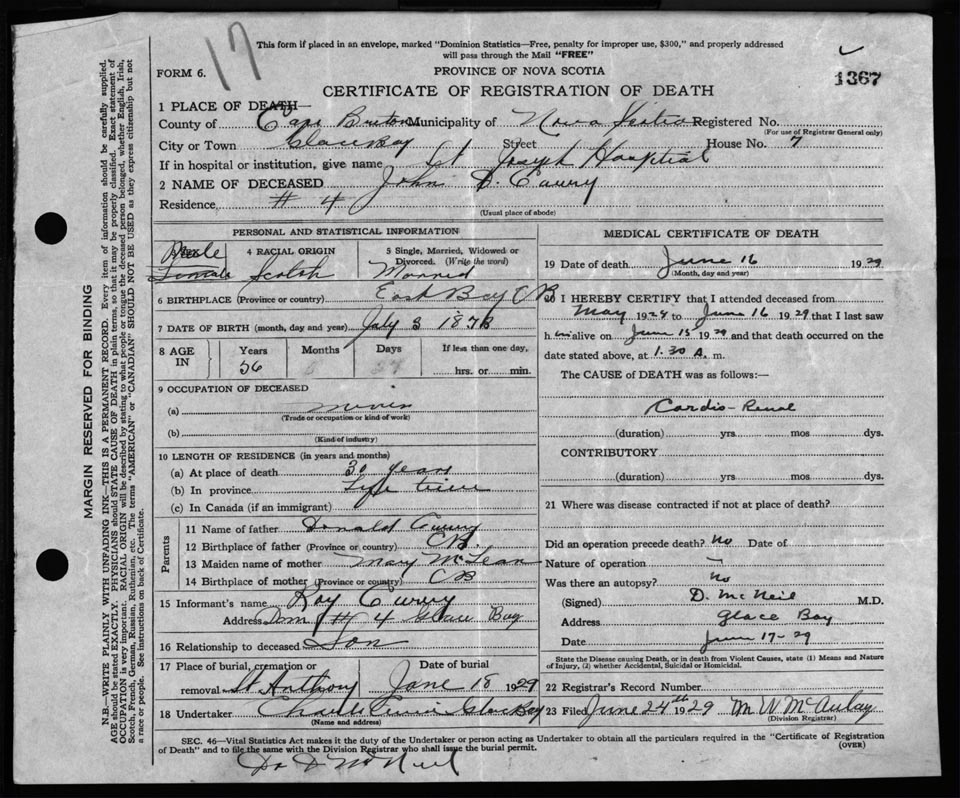 17
This form if placed in an envelope, marked "Dominion Statistics—Free, penalty for improper use, $300," and properly addressed
will pass through the Mail "FREE"
FORM 6.
PROVINCE OF NOVA SCOTIA
1367
CERTIFICATE OF REGISTRATION OF DEATH
1 PLACE OF DEATH—
County of Cape Breton Municipality of Nova Scotia Registered No.
(For use of Registrar General only)
City or Town Glace Bay Street House No. 7
If in hospital or institution, give name St Joseph Hosptial
2 NAME OF DECEASED John D. Curry
Residence # 4
(Usual place of abode)
PERSONAL AND STATISTICAL INFORMATION
Male
Female
4 RACIAL ORIGIN
Scotch
5 Single, Married, Widowed or
Divorced. (Write the word)
Married
6 BIRTHPLACE (Province or country) East Bay CB
7 DATE OF BIRTH (month, day and year) July 3 1873
8 AGE
IN
Years Months Days If less than one day,
56 hrs. or min.
9 OCCUPATION OF DECEASED
(a) miner
(Trade or occupation or kind of work)
(b)
(Kind of industry)
10 LENGTH OF RESIDENCE (in years and months)
(a) At place of death 30 years
(b) In province Life time
(c) In Canada (if an immigrant)
Parents
11 Name of father Donald Curry
12 Birthplace of father (Province or country) CB.
13 Maiden name of mother Mary McLean
14 Birthplace of mother (Province or country) CB
15 Informant's name Roy Curry
Address Dom # 4 Glace Bay
16 Relationship to deceased Son
17 Place of burial, cremation or
removal St Anthony
Date of burial
June 18 1929
18 Undertaker Charlie Glace Bay
(Name and address)
MEDICAL CERTIFICATE OF DEATH
19 Date of death June 16 1929
(Month, day and year)
20 I HEREBY CERTIFY that I attended deceased from
May 1929 to June 16 1929 that I last saw
h im alive on June 15 1929 and that death occurred on the
date stated above, at 1.30 A. m.
The CAUSE of DEATH was as follows:—
Cardio-Renal
(duration) yrs. mos dys.
CONTRIBUTORY
(duration) yrs. mos. dys.
21 Where was disease contracted if not at place of death?
Did an operation precede death? No Date of
Nature of operation —
Was there an autopsy? No
(Signed) D. McNeil M.D.
Address Glace Bay
Date June 17-29
State the Disease causing Death, or in death from Violent Causes, state (1) Means and Nature
of Injury, (2) whether Accidental, Suicidal or Homicidal.
22 Registrar's Record Number
23 Filed June 24th 1929 M W McAulay
(Division Registrar)
SEC. 46—Vital Statistics Act makes it the duty of the Undertaker or person acting as Undertaker to obtain all the particulars required in the "Certificate of Registration
of Death" and to file the same with the Division Registrar who shall issue the burial permit.
(OVER)
Dr D McNeil
MARGIN RESERVED FOR BINDING
N.B.—WRITE PLAINLY WITH UNFADING INK—THIS IS A PERMANENT RECORD. Every item of information should be carefully supplied.
AGE should be stated EXACTLY. PHYSICIANS should STATE CAUSE OF DEATH in plain terms, so that it may be properly classified. Exact statement of
OCCUPATION is very important. RACIAL ORIGIN will be described by stating to what people or tongue the deceased person belonged, whether English, Irish,
Scotch, French, German, Russian, Ruthenian, etc. The terms "AMERICAN" or "CANADIAN" SHOULD NOT BE USED as they express citizenship but not
a race or people. See instructions on back of Certificate.